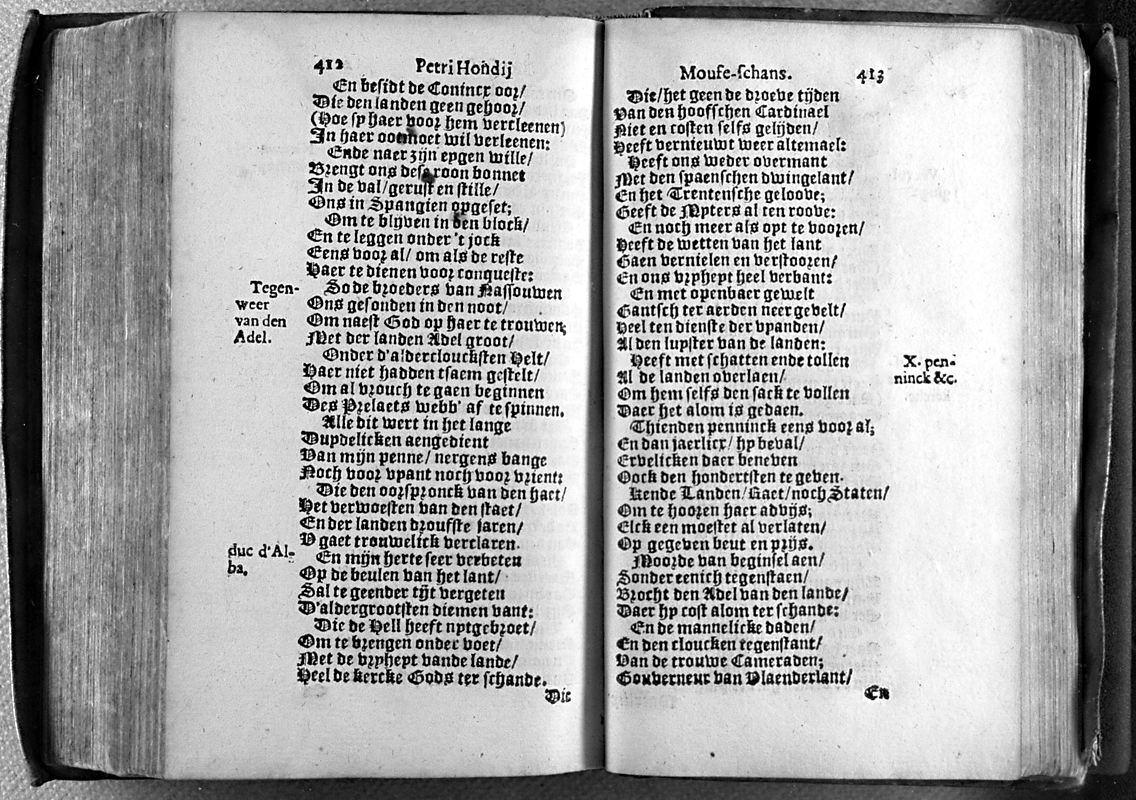 412 Petri Hondij
En besidt de Coninck oor/
Die den landen geen gehoor/
(Hoe sy haer voor hem vercleenen)
In haer ootmoet wil verleenen:
Ende naer zijn eygen wille/
Brengt ons desaroon bonnet
In de val/gerust en stille/
Ons in Spangien opgeset;
Om te blijven in den block/
En te leggen onder 't jock
Eens voor al/ om als de reste
Haer te dienen voor conqueste:
Tegen-
weer
van den
Adel.
So de broeders van Nassouwen
Ons gesonden in den noot/
Om naest God op haer te trouwen;
Met der landen Adel groot/
Onder d'aldercloucksten Helt/
Haer niet hadden tsaem gestelt/
Om al vrouch te gaen beginnen
Des Prelaets webb' af te spinnen.
Alle dit wert in het lange
Duydelicken aengedient
Van mijn penne/ nergens bange
Noch voor vyant noch voor vrient:
Die den oorspronck van den haet/
Het verwoesten van den staet/
En der landen droufste jaren/
V gaet trouwelick verclaren.
duc d'Al-
ba.
En mijn herte seer verbeten
Op de beulen van het lant/
Sal te geender tijt vergeten
D'aldergrootsten diemen vant:
Die de Hell heeft uytgebroet/
Om te brengen onder voet/
Met de vryheyt vande lande/
Heel de kercke Gods ter schande.
Die
Mouse-schans. 413
Die/het geen de droeve tijden
Van den hoofschen Cardinael
Niet en costen selfs gelijden/
Heeft vernieuwt weer altemael:
Heeft ons weder overmant
Met den spaenschen dwingelant/
En het Trentensche geloove;
Geeft de Myters al ten roove:
En noch meer als opt te vooren/
Heeft de wetten van het lant
Gaen vernielen en verstooren/
En ons vryheyt heel verbant:
En met openbaer gewelt
Gantsch ter aerden neer gevelt/
Heel ten dienste der vyanden/
Al den luyster van de landen:
X. pen-
ninck &c.
Heeft met schatten ende tollen
Al de landen overlaen/
Om hem selfs den sack te vollen
Daer het alom is gedaen.
Thienden penninck eens voor al;
En dan jaerlicx/ hy beval/
Ervelicken daer beneven
Oock den hondertsten te geven.
Kende Landen/Raet/noch Staten/
Om te hooren haer advijs;
Elck een moestet al verlaten/
Op gegeven beut en prijs.
Moorde van beginsel aen/
Sonder eenich tegenstaen/
Brocht den Adel van den lande/
Daer hy cost alom ter schande:
En de mannelicke daden/
En den cloucken tegenstant/
Van de trouwe Cameraden;
Gouverneur van Vlaenderlant/
En